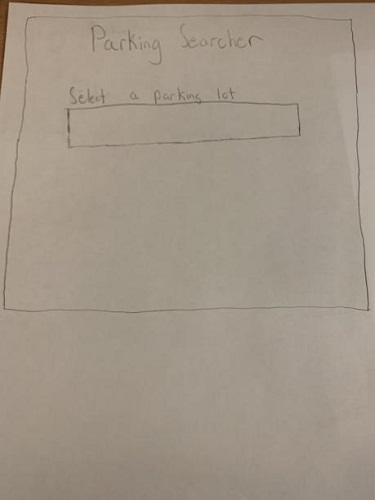 Parking Searcher
Select a parking lot